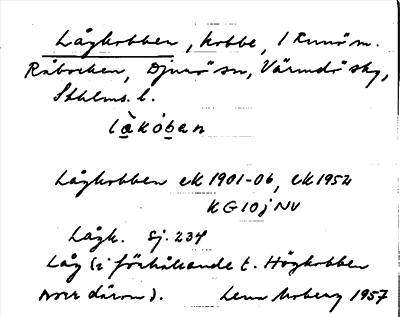 Lågkobben, kobbe, 1 Runö m.
Råbocken, Djurö sn, Värmdö skg,
Sthlms. l.
låkòban
Lågkobben ek 1901-06, ek 1952
KG10jNV
Lågk. Sj. 234
Låg (i förhållande t. Högkobben
norr därom). Lenn Moberg 1957